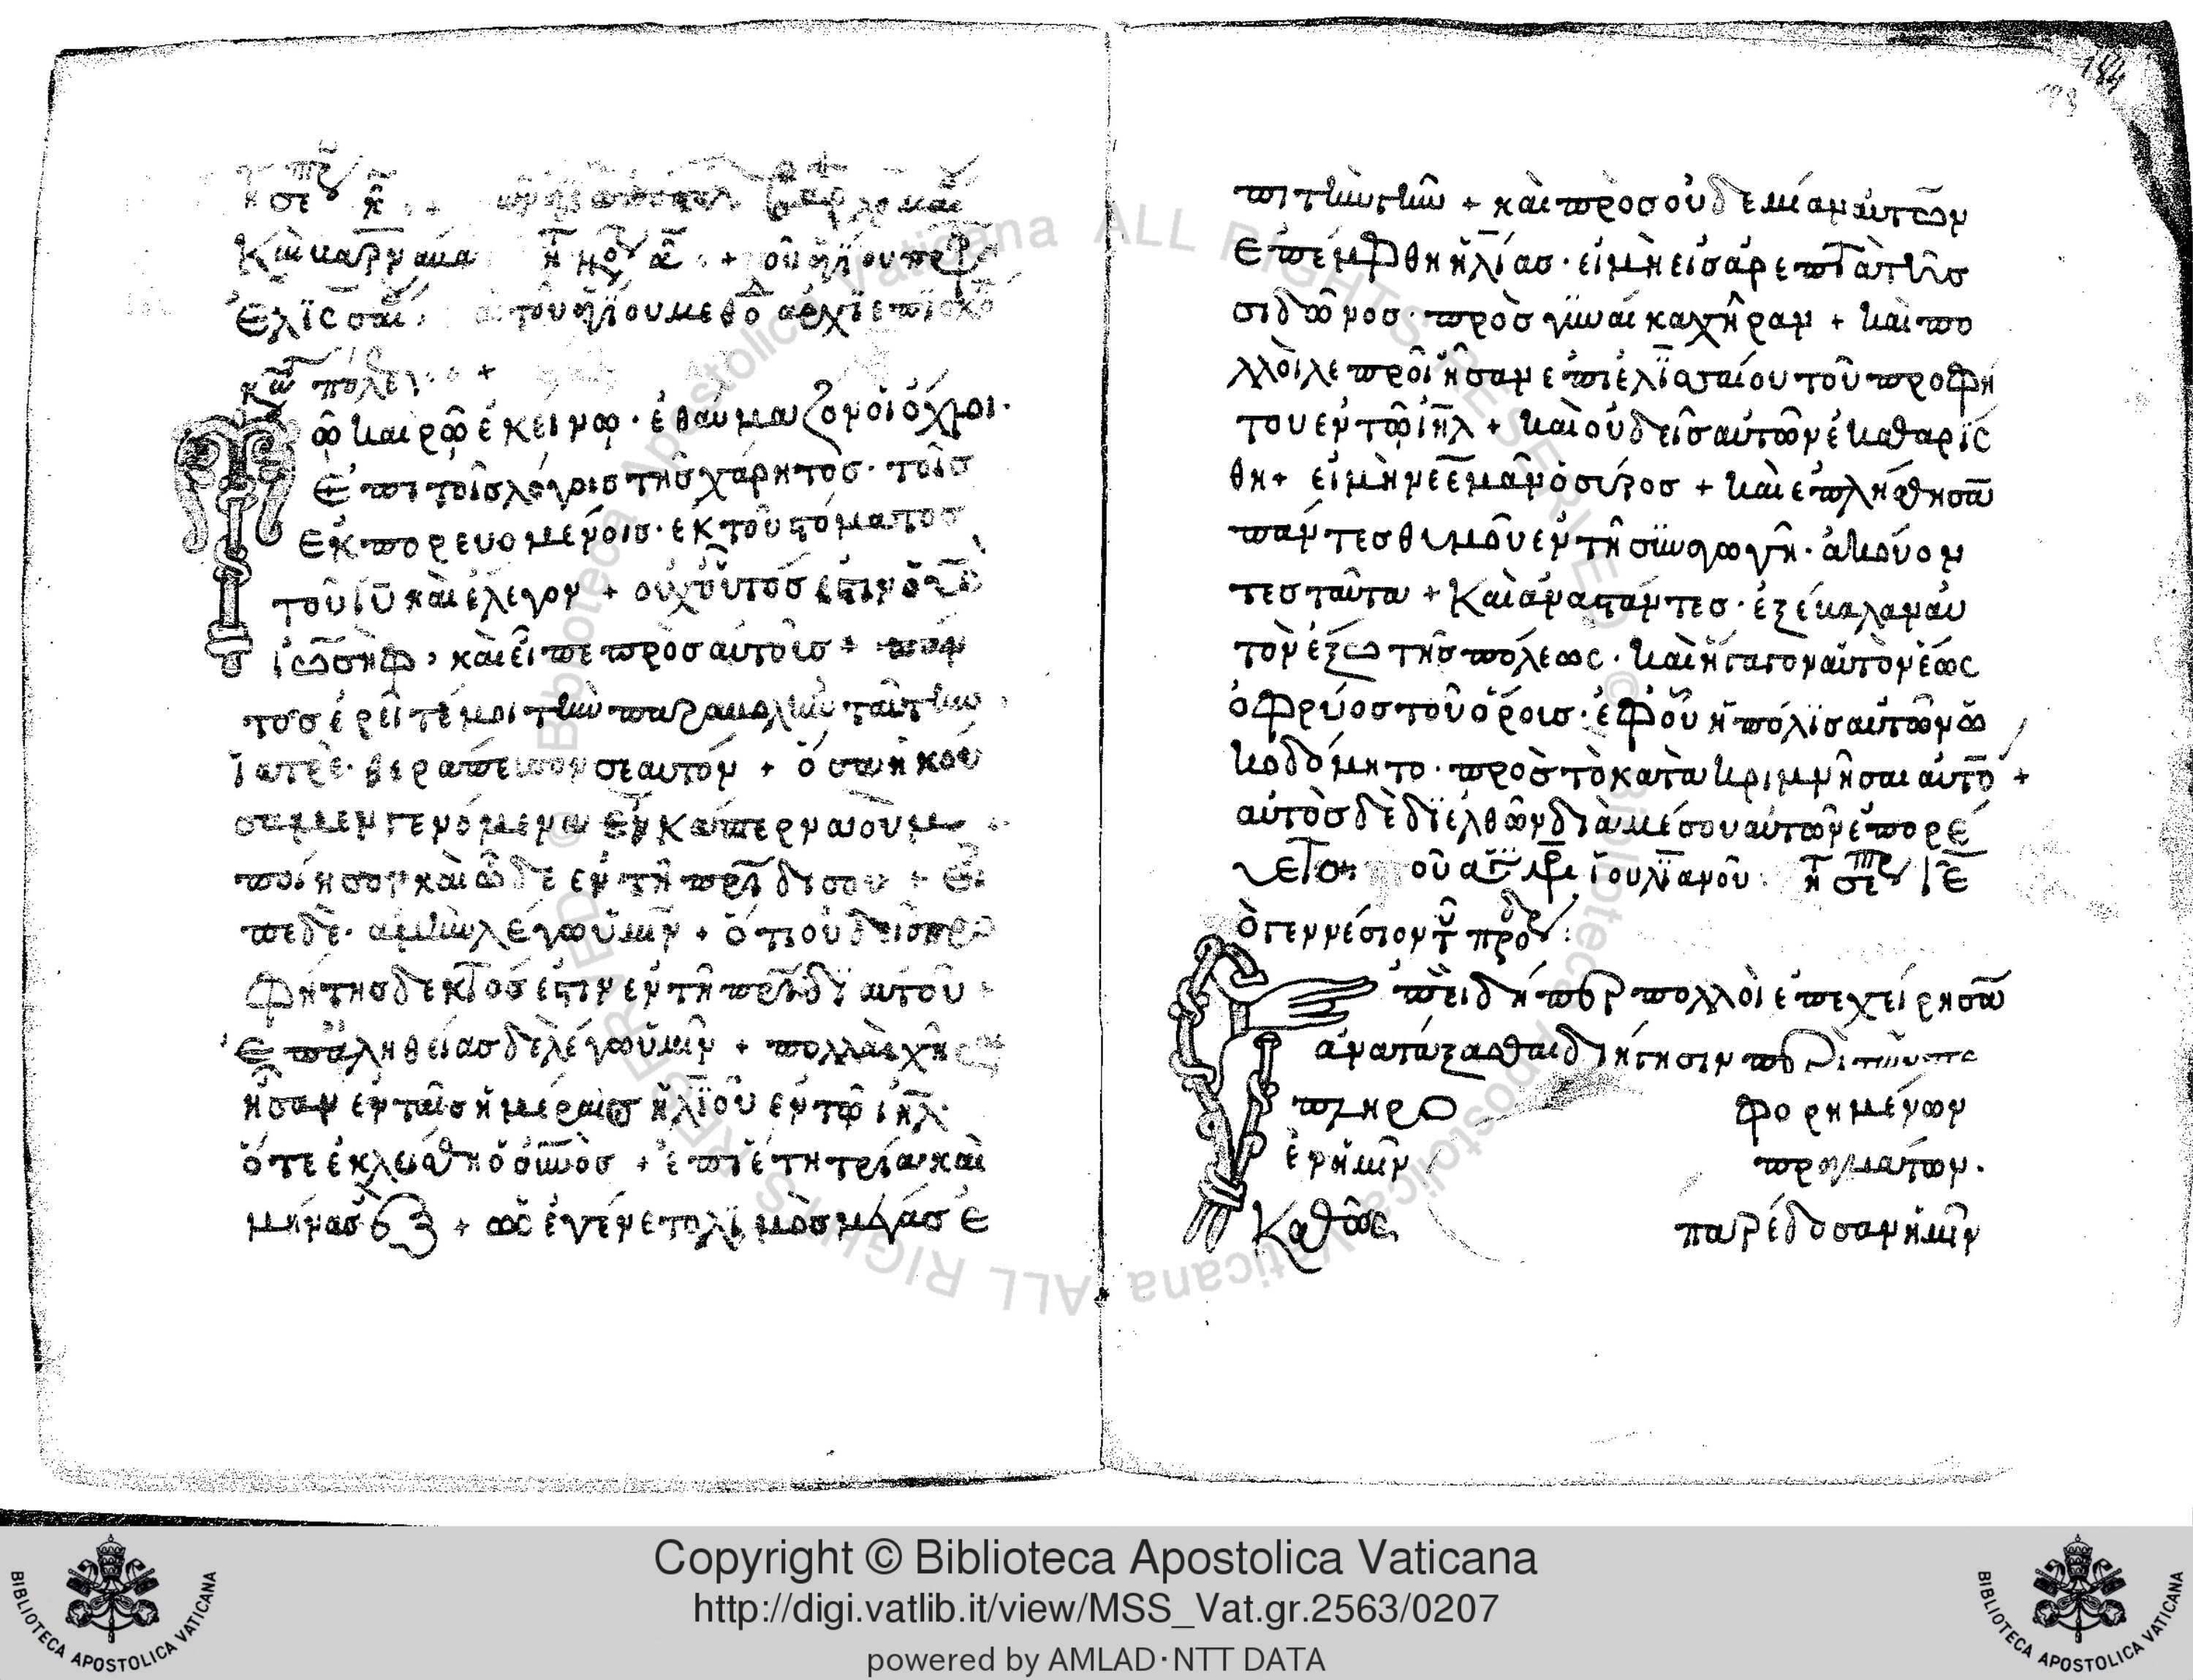 ἐλισσαί τοῦ ἁγίου μεθο ἀρχιεπισκό
κω πολε +
ῶ καιρῶ ἐκείνω · ἐθαύμαζον οἱ ὄχλοι ·
ἐπὶ τοῖς λόγοις τῆς χάρητος · τοῖς
ἐκπορευομένοις · ἐκ τοῦ στόματος
τοῦ ἰῦ καὶ ἔλεγον + οὐχ οὗτός ἐστιν ὁ
ἰωσὴφ, καὶ εἶπε πρὸς αὐτοὺς + πάν
τος ἐρεῖτέ μοι τὴν παραβολὴν ταύτην
ἰατρὲ · θεράπευσον σεαυτόν + ὅσα ἠκού
σαμεν γενόμενα ἐν καπερναοὺμ
ποίησον καὶ ὧδε ἐν τῆ πρίδι σου + εἶ
πε δὲ · ἀμὴν λέγω ὑμῖν + ὅτι οὐδεὶς προ
φήτης δεκτός ἐστιν ἐν τῆ πρίδι αὐτοῦ
ἐπ' ἀληθείας δὲ λέγω ὑμῖν + πολλαὶ χῆραι
ἦσαν ἐν ταῖς ἡμέραις ἠλιοῦ ἐν τῶ ἰηλ ·
ὅτε ἐκλείσθη ὁ οὐνὸς + ἐπὶ ἔτη τρία καὶ
μήνας ἓξ + ὡς ἐγένετο λιμὸς μέγας ἐ
πι τὴν γῆν + καὶ πρὸς οὐδεμίαν αὐτῶν
ἐπέμφθη ἠλίας · εἰ μὴ εἰς σάρεπτα τῆς
σιδῶνος · πρὸς γυναίκα χήραν + καὶ πο
λλοὶ λεπροὶ ἦσαν ἐπὶ ἐλισσαίου τοῦ προφή
του ἐν τῶ ἰηλ + καὶ οὐδεὶς αὐτῶν ἐκαθαρίσ
θη + εἰ μὴ νεεμαν ὁ σύρος + καὶ ἐπλήσθησαν
πάντες θυμοῦ ἐν τῆ συναγωγῆ · ἀκούον
τες ταῦτα + Καὶ ἀναστάντες · ἐξέκαλαναυ
τὸν ἔξω τῆς πόλεως · καὶ ἤγαγον αὐτὸν ἕως
ὀφρύος τοῦ ὄρους · ἐφ' οὗ ἡ πόλις αὐτῶν ὠ
κοδόμητο · πρὸς τὸ κατακριμνῆσαι αὐτό +
αὐτὸς δὲ διελθὼν διὰ μέσου αὐτῶν ἐπορέ
υετο + τοῦ ἁγ ιουλιανοῦ
ὀ γεννέσιον τ προδ :
πειδήπερ πολλοὶ ἐπεχείρησαν
ἀνατάξασθαι διήγησιν περὶ τῶν πε
πληρο φορημένων
ἐν ἡμῖν πραγμάτων ·
Καθὼς παρέδοσαν ἡμῖν
Copyright © Biblioteca Apostolica Vaticana
http://digi.vatlib.it/view/MSS_Vat.gr.2563/0207
powered by AMLAD·NTT DATA
BIBLIOTECA APOSTOLICA VATICANA
BIBLIOTECA APOSTOLICA VATICANA